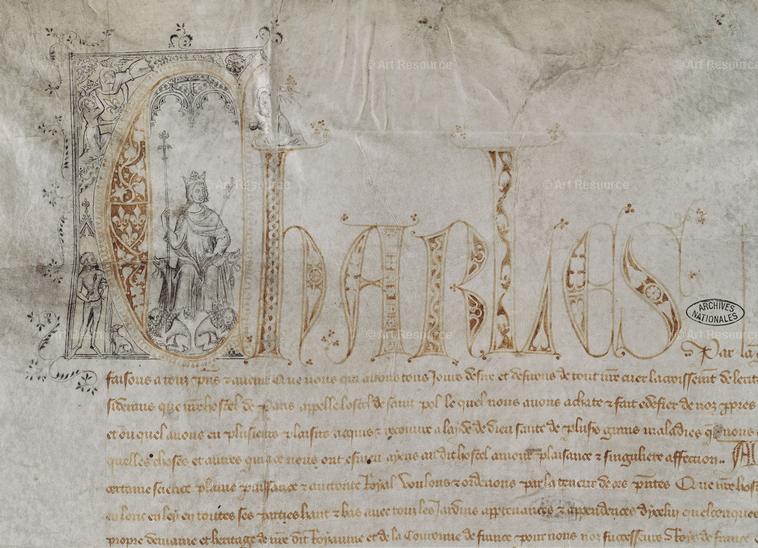 © Art Resource
© Art Resource
© Art Resource
© Art Resource
© Art Resource
© Art Resource
ARCHIVES NATIONALES
Charles
Par la g
faisons a touz pns z avenir Que nous qui avons touz Jours desire et desirons de tout nre cuer lacroissement de
siderans que nre hostel de Paris appelle lostel de saint pol le quel nous avons achate z fait edefier de noz ppres
et ou quel avons eu plusieurs plaisirs acquis z recouvre a layde de dieu sante de pluss grans maladies q nous
quelles choses et autres qui ace nous ont esmeu ayens audit hostel amour plaisance z singuliere affection.. A
certaine science plaine puissance z auctorite Royal Voulons z ordenons par la teneur de ces pntes Que nre hos
en long en ley en toutes ses parties hault z bas avec touz les Jardins appartenances z appendences dycelui quelconques
propre demaine et heritage de nre dit Royaume et de la Couronne de france pour nous noz successeurs Roys de france